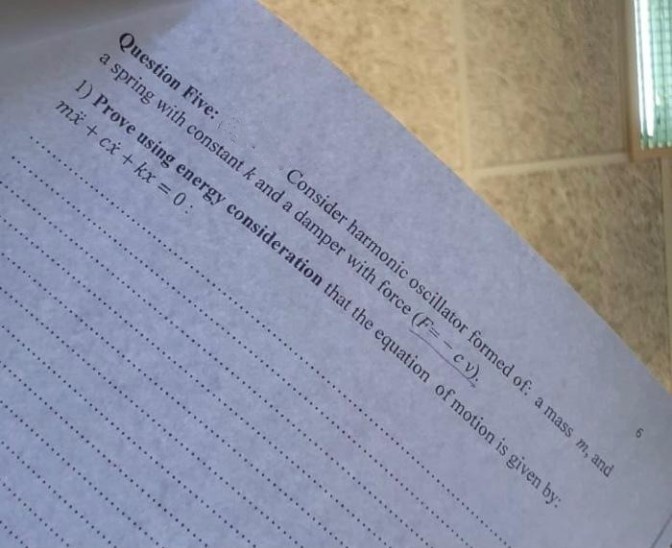 6
Question Five: Consider harmonic oscillator formed of: a mass m, and
a spring with constant k and a damper with force (F= - c v).
1) Prove using energy consideration that the equation of motion is given by:
mẍ + cẋ + kx = 0 :